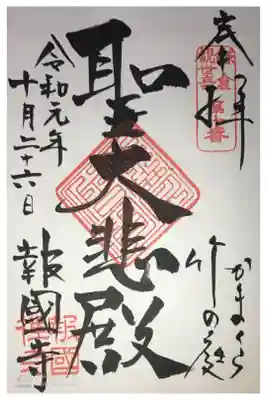 奉拝
かまくら
竹の庭
聖大悲殿
令和元年
十月二十六日
報國寺